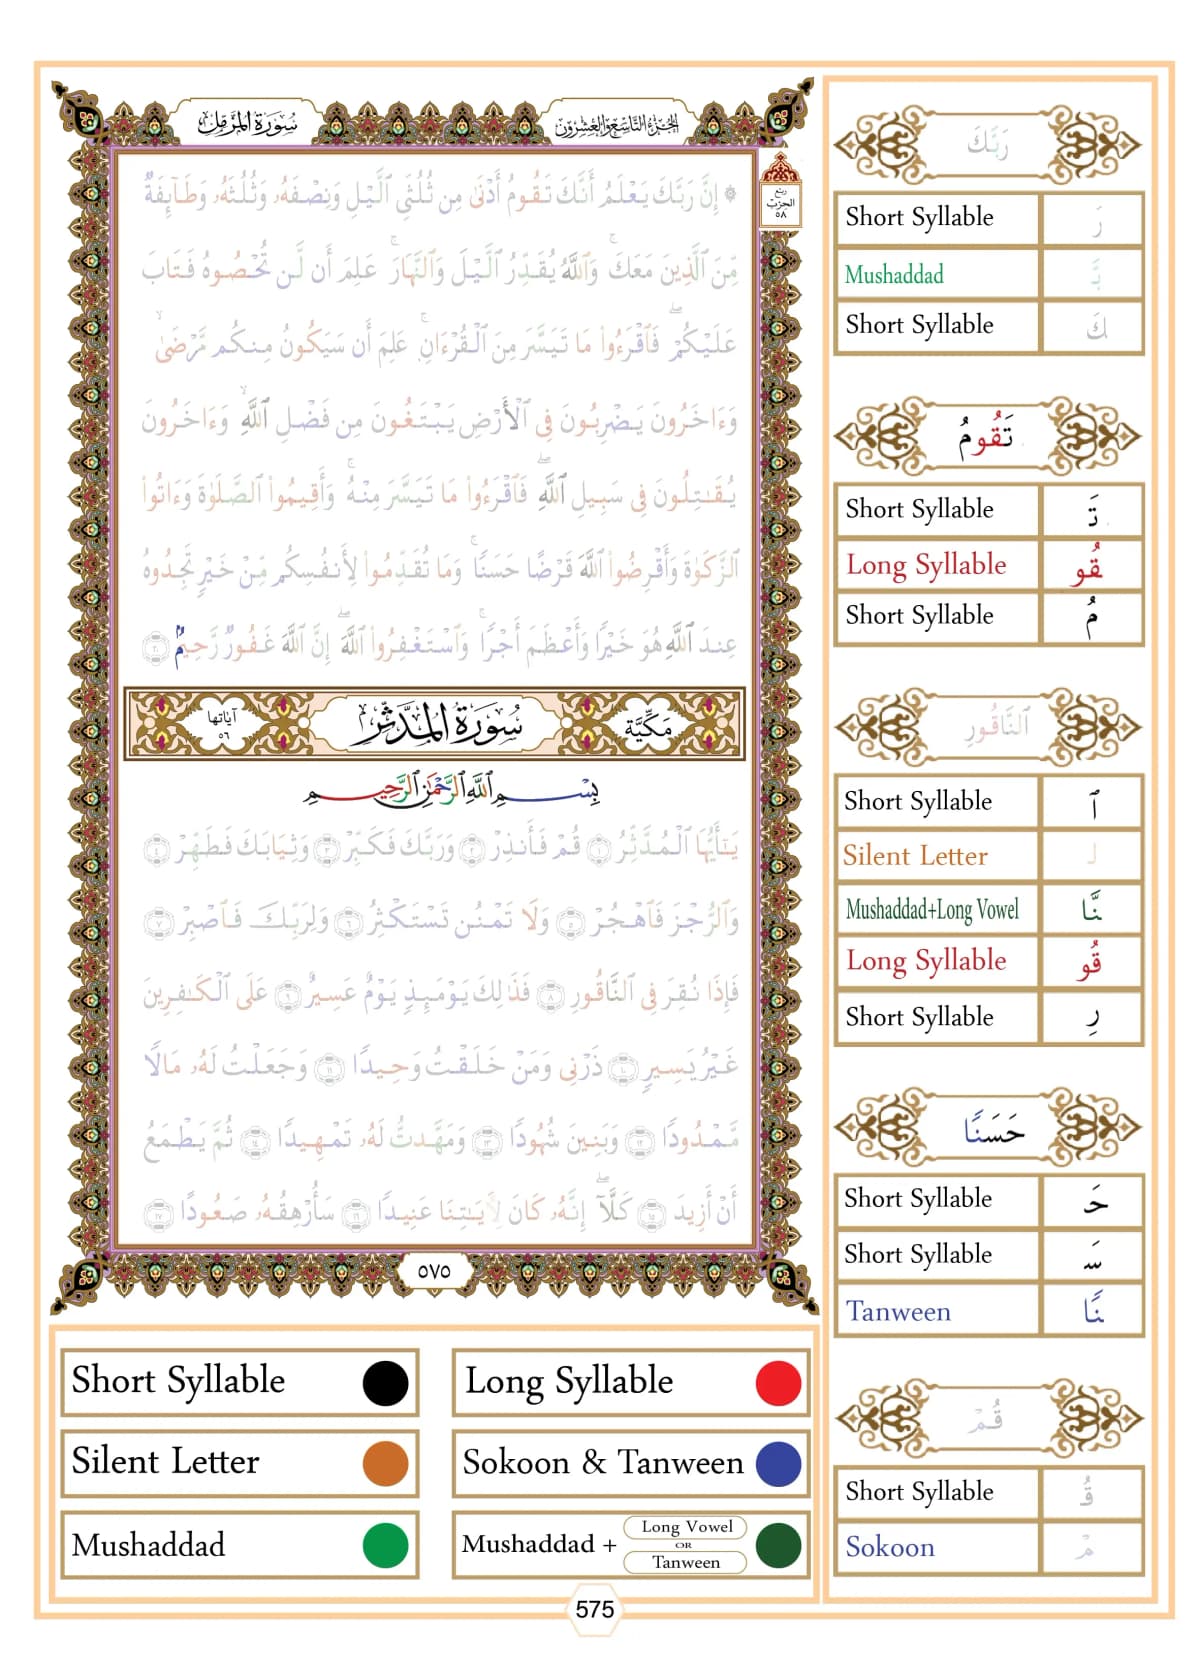 سُورَةُ المُزَّمِّل
الجُزءُ التَّاسِعُ وَالعِشْرُون
ربع
الحزب
٥٨
۞ إِنَّ رَبَّكَ يَعْلَمُ أَنَّكَ تَقُومُ أَدْنَىٰ مِن ثُلُثَىِ ٱلَّيْلِ وَنِصْفَهُۥ وَثُلُثَهُۥ وَطَآئِفَةٌ
مِّنَ ٱلَّذِينَ مَعَكَ ۚ وَٱللَّهُ يُقَدِّرُ ٱلَّيْلَ وَٱلنَّهَارَ ۚ عَلِمَ أَن لَّن تُحْصُوهُ فَتَابَ
عَلَيْكُمْ ۖ فَٱقْرَءُوا۟ مَا تَيَسَّرَ مِنَ ٱلْقُرْءَانِ ۚ عَلِمَ أَن سَيَكُونُ مِنكُم مَّرْضَىٰ ۙ
وَءَاخَرُونَ يَضْرِبُونَ فِى ٱلْأَرْضِ يَبْتَغُونَ مِن فَضْلِ ٱللَّهِ ۙ وَءَاخَرُونَ
يُقَٰتِلُونَ فِى سَبِيلِ ٱللَّهِ ۖ فَٱقْرَءُوا۟ مَا تَيَسَّرَ مِنْهُ ۚ وَأَقِيمُوا۟ ٱلصَّلَوٰةَ وَءَاتُوا۟
ٱلزَّكَوٰةَ وَأَقْرِضُوا۟ ٱللَّهَ قَرْضًا حَسَنًا ۚ وَمَا تُقَدِّمُوا۟ لِأَنفُسِكُم مِّنْ خَيْرٍ تَجِدُوهُ
عِندَ ٱللَّهِ هُوَ خَيْرًا وَأَعْظَمَ أَجْرًا ۚ وَٱسْتَغْفِرُوا۟ ٱللَّهَ ۖ إِنَّ ٱللَّهَ غَفُورٌ رَّحِيمٌۢ ٢٠
مَكِّيَّة
سُورَةُ المُدَّثِّر
آياتها
٥٦
بِسْمِ ٱللَّهِ ٱلرَّحْمَٰنِ ٱلرَّحِيمِ
يَٰٓأَيُّهَا ٱلْمُدَّثِّرُ ١ قُمْ فَأَنذِرْ ٢ وَرَبَّكَ فَكَبِّرْ ٣ وَثِيَابَكَ فَطَهِّرْ ٤
وَٱلرُّجْزَ فَٱهْجُرْ ٥ وَلَا تَمْنُن تَسْتَكْثِرُ ٦ وَلِرَبِّكَ فَٱصْبِرْ ٧
فَإِذَا نُقِرَ فِى ٱلنَّاقُورِ ٨ فَذَٰلِكَ يَوْمَئِذٍ يَوْمٌ عَسِيرٌ ٩ عَلَى ٱلْكَٰفِرِينَ
غَيْرُ يَسِيرٍ ١٠ ذَرْنِى وَمَنْ خَلَقْتُ وَحِيدًا ١١ وَجَعَلْتُ لَهُۥ مَالًا
مَّمْدُودًا ١٢ وَبَنِينَ شُهُودًا ١٣ وَمَهَّدتُّ لَهُۥ تَمْهِيدًا ١٤ ثُمَّ يَطْمَعُ
أَنْ أَزِيدَ ١٥ كَلَّآ ۖ إِنَّهُۥ كَانَ لِءَايَٰتِنَا عَنِيدًا ١٦ سَأُرْهِقُهُۥ صَعُودًا ١٧
٥٧٥
رَبَّكَ
Short Syllable رَ
Mushaddad بَّ
Short Syllable كَ
تَقُومُ
Short Syllable تَ
Long Syllable قُو
Short Syllable مُ
ٱلنَّاقُورِ
Short Syllable ٱ
Silent Letter لـ
Mushaddad+Long Vowel نَّا
Long Syllable قُو
Short Syllable رِ
حَسَنًا
Short Syllable حَـ
Short Syllable سَـ
Tanween نًا
قُمْ
Short Syllable قُـ
Sokoon مْ
Short Syllable
Long Syllable
Silent Letter
Sokoon & Tanween
Mushaddad
Mushaddad +
Long Vowel
OR
Tanween
575